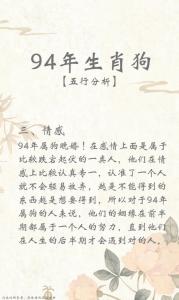 94年生肖狗
【五行分析】
三、情感
94年属狗晚婚！在感情上面是属于
比较跌宕起伏的一类人，他们在情
感上比较认真专一，认准了一个人
就不会轻易放弃，越是不能得到的
东西越是想要得到，所以对于94年
属狗的人来说，他们的姻缘在前半
期都属于一个人的努力，直到他们
在人生的后半期才会遇到对的人，